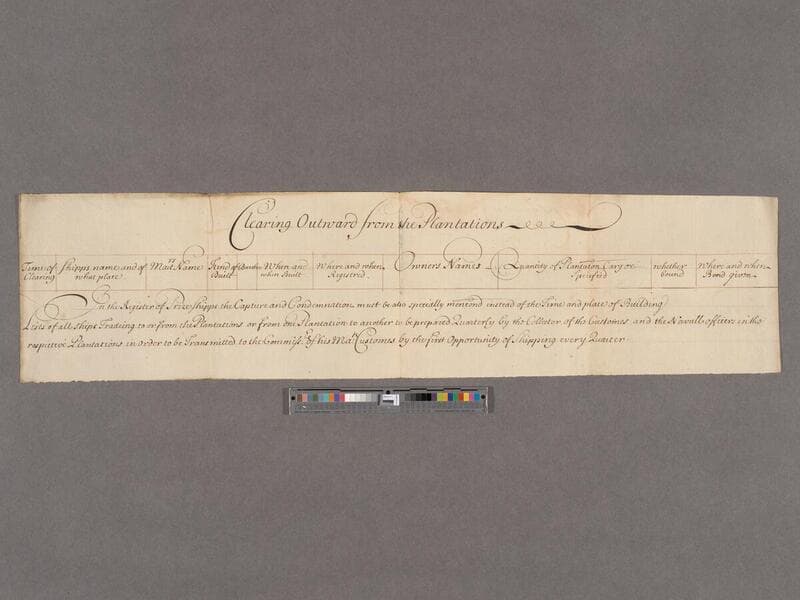 Clearing Outward from the Plantations
Time of Clearing
Shipps name and of what place
Mastrs Name
Kind of Built
When and when Built
Where and when Registred
Owners Names
Quantity of Plantaton Cargoe Specifed
whether bound
Where and when Bond given
In the Register of Prize Shipps the Capture and Condemnation must be also specially mentiond instead of the Time and place of Building
Lists of all Ships Trading to or from the Plantations or from one Plantation to another to be prepared Quarterly by the Collector of the Customes and the Navall officers in the
respective Plantations in order to be Transmitted to the Commissrs of his Matys Customes by the first Opportunity of Shipping every Quarter